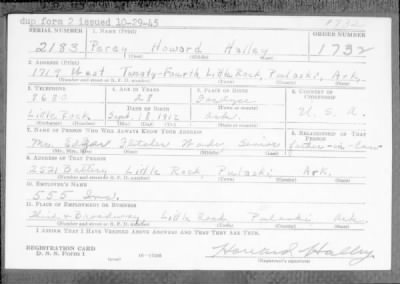 dup form 2 issued 10-29-45
1732
SERIAL NUMBER 1. NAME (Print) ORDER NUMBER
2183 Percy Howard Halley 1732
(First) (Middle) (Last)
2. ADDRESS (Print)
1719 West Twenty-Fourth Little Rock, Pulaski, Ark.
(Number and street or R. F. D. number) (Town) (County) (State)
3. TELEPHONE 4. AGE IN YEARS 5. PLACE OF BIRTH 6. COUNTRY OF CITIZENSHIP
28
DATE OF BIRTH (Town or county)
Little Rock Sept. 18, 1912 Ark. U. S. A.
(Exchange) (Mo.) (Day) (Yr.) (State or country)
7. NAME OF PERSON WHO WILL ALWAYS KNOW YOUR ADDRESS 8. RELATIONSHIP OF THAT PERSON
Mr. Edgar Fletcher Wade Senior father-in-law
(Mr., Mrs., Miss) (First) (Middle) (Last)
9. ADDRESS OF THAT PERSON
2521 Battery Little Rock, Pulaski Ark.
(Number and street or R. F. D. number) (Town) (County) (State)
10. EMPLOYER'S NAME
555 Inc.
11. PLACE OF EMPLOYMENT OR BUSINESS
Third & Broadway Little Rock Pulaski Ark.
(Number and street or R. F. D. number) (Town) (County) (State)
I AFFIRM THAT I HAVE VERIFIED ABOVE ANSWERS AND THAT THEY ARE TRUE.
REGISTRATION CARD
D. S. S. FORM 1 (over) 16-17105 Howard Halley
(Registrant's signature)